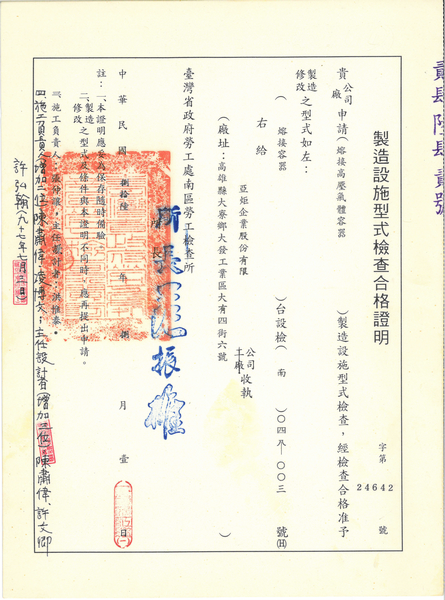 貳肆陸肆貳號
製造設施型式檢查合格證明
字第 24642 號
貴公司廠申請(熔接高壓氣體容器)製造設施型式檢查,經檢查合格准予
製造修改之型式如左:
(熔接容器)台設檢(南)○四八—○○三號(H)
右給
亞炬企業股份有限公司工廠收執
(廠址:高雄縣大寮鄉大發工業區大有四街六號)
臺灣省政府勞工處南區勞工檢查所
所長
振雄
中華民國捌拾陸年 月壹 日
註:一、本證明應妥為保存隨時備驗
二、製造修改之型式及條件與本證明不同時,應再提出申請。
三、施工負責人:張分鎮,主任設計者:洪惟泰。
四、施工負責人增加二位陳肅偉、凌博文;主任設計者增加二位陳肅偉、許文卿
許弘翰(九十七年七月三日)